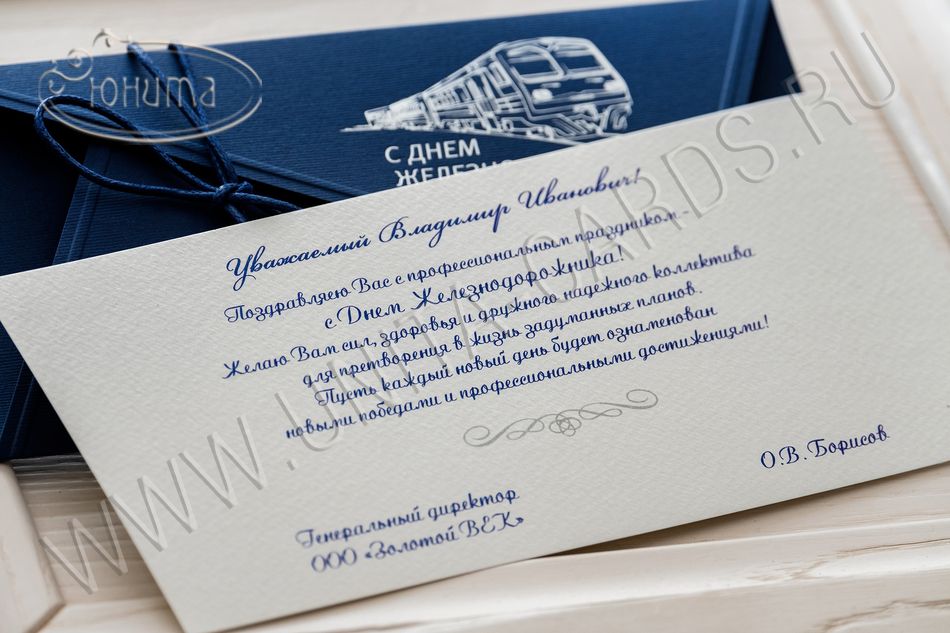 Юнита
С ДНЕМ
Уважаемый Владимир Иванович!
Поздравляею Вас с профессиональным праздником
с Днем Железнодорожника!
Желаю Вам сил, здоровья и дружного надежного коллектива
для претворения в жизнь задуманных планов.
Пусть каждый новый день будет ознаменован
новыми победами и профессиональными достижениями!
О.В. Борисов
Генеральный директор
ООО «Золотой ВЕК»
WWW.UNITA-CARDS.RU